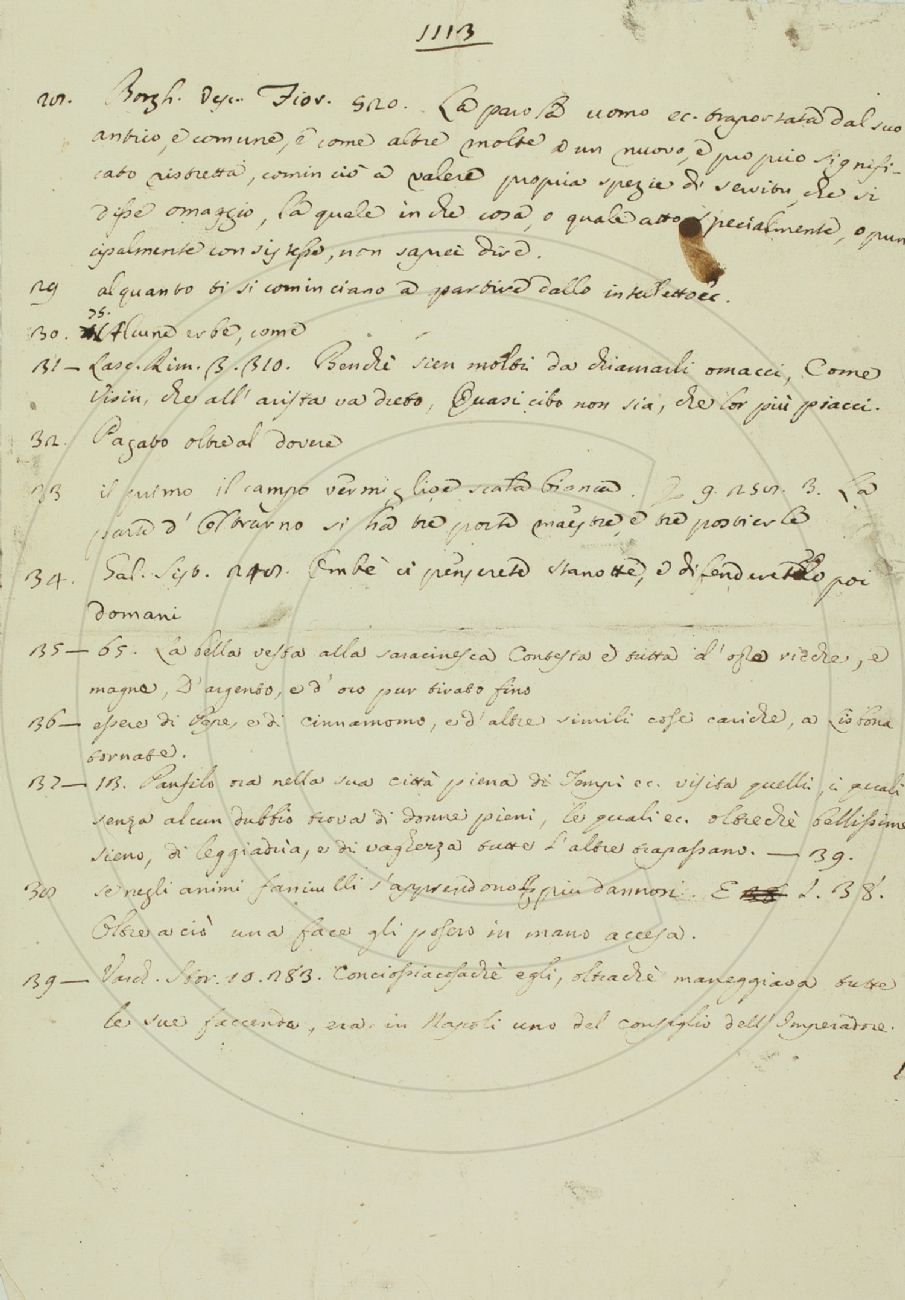 1113
28. Borgh. Vesc. Fior. 520. La parola uomo ec. trasportata dal suo
antico, e comune, e come altre molte a un nuovo, e proprio signifi-
cato ristretta, cominciò a valere propria spezie di servitù, che si
disse omaggio, la quale in che cosa, o quale atto specialmente, o prin
cipalmente consistesse, non saprei dire.
29 alquanto ti si cominciano a partire dallo intelletto ec.
30. 35. Alcune erbe, come
31 — Lasc. Rim. 3. 310. Benchè sien molti da chiamarli omacci, Come
Visin, che all' arista va dreto, Quasi cibo non sia, che lor più piacci.
32. Pagato oltre al dovere
33 il primo il campo vermiglio e scala bianca. E g. 258. 3. La
parte d' Oltrarno si ha tre porte maestre, e tre postierle
34. Gal. Sist. 248. Embè ci penserete stanotte, e difenderetelo poi
domani
35 — 65. La bella vesta alla saracinesca Contesta e tutta d' opre ricche, e
magne, D' argento, e d' oro pur tirato fino
36 — essere di Pepe, e di cinnamomo, e d' altre simili cose cariche, a Lisbona
tornate.
37 — 13. Panfilo ora nella sua città piena di Tempi ec. visita quelli, i quali
senza alcun dubbio trova di donne pieni, le quali ec. oltrechè bellissime
sieno, di leggiadria, e di vaghezza tutte l' altre trapassano. — 39.
38 se negli animi fanciulli s' apprendono più dannosi. E l. 38.
Oltre a ciò una face gli posero in mano accesa.
39 — Varch. Stor. 10. 283. Conciossiacosachè egli, oltrachè maneggiava tutte
le sue faccende, era in Napoli uno del consiglio dell' Imperadore.